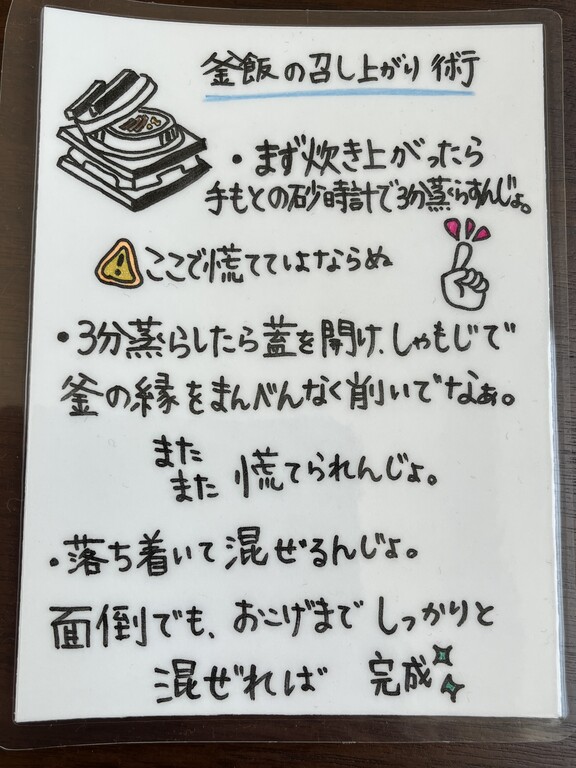 釜飯の召し上がり術
・まず炊き上がったら
手もとの砂時計で3分蒸らすんじょ。
ここで慌てていよならぬ
・3分蒸らしたら蓋を開け、しゃもじで
釜の縁をまんべんなく削いでなぁ。
また
また 慌てられんじょ。
・落ち着いて混ぜるんじょ。
面倒でも、おこげまでしっかりと
混ぜれば 完成